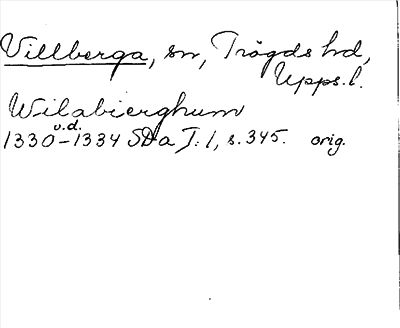 Villberga, sn, Trögds hd,
Upps. l.
Wilabierghum
u.d.
1330–1334 SDa T: 1, s. 345. orig.